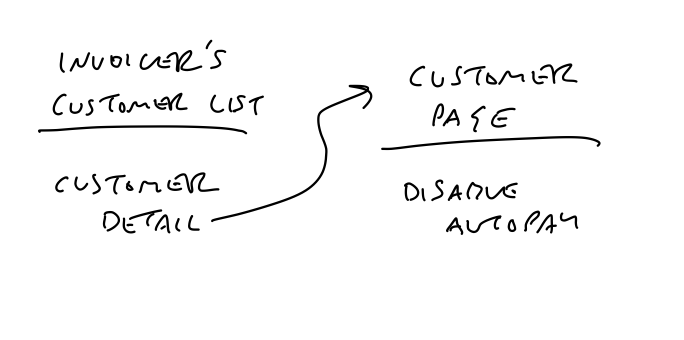 INVOICER'S
CUSTOMER LIST
CUSTOMER
DETAIL
CUSTOMER
PAGE
DISABLE
AUTOPAY